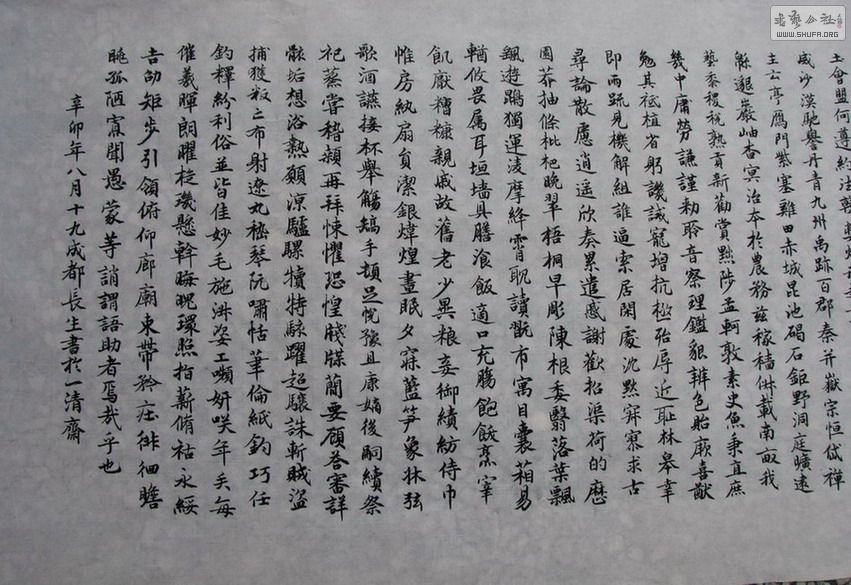 土會盟何遵約法韓弊煩
威沙漠馳譽丹青九州禹跡百郡秦并嶽宗恒岱禪
主云亭鴈門紫塞雞田赤城昆池碣石鉅野洞庭曠遠
緜邈巖岫杳冥治本於農務茲稼穡俶載南畝我
藝黍稷稅熟貢新勸賞黜陟孟軻敦素史魚秉直庶
幾中庸勞謙謹勑聆音察理鑑貌辨色貽厥嘉猷
勉其祗植省躬譏誡寵增抗極殆辱近恥林皋幸
即兩疏見機解組誰逼索居閑處沈默寂寥求古
尋論散慮逍遥欣奏累遣慼謝歡招渠荷的歷
園莽抽條枇杷晚翠梧桐早彫陳根委翳落葉飄
颻遊鵾獨運凌摩絳霄耽讀翫市寓目囊箱易
輶攸畏屬耳垣墻具膳飡飯適口充腸飽飫烹宰
飢厭糟糠親戚故舊老少異粮妾御績紡侍巾
帷房紈扇員潔銀煒煌晝眠夕寐藍笋象床弦
歌酒讌接杯舉觴矯手頓足悅豫且康嫡後嗣續祭
祀蒸嘗稽顙再拜悚懼恐惶牋牒簡要顧答審詳
骸垢想浴熱願涼驢騾犢特駭躍超驤誅斬賊盜
捕獲叛亡布射遼丸嵇琴阮嘯恬筆倫紙鈞巧任
釣釋紛利俗並皆佳妙毛施淑姿工嚬妍笑年矢每
催羲暉朗曜琁璣懸斡晦魄環照指薪脩祜永綏
吉劭矩步引領俯仰廊廟束帶矜莊徘徊瞻
眺孤陋寡聞愚蒙等誚謂語助者焉哉乎也
辛卯年八月十九成都長生書於一清齋
WWW.SHUFA.ORG